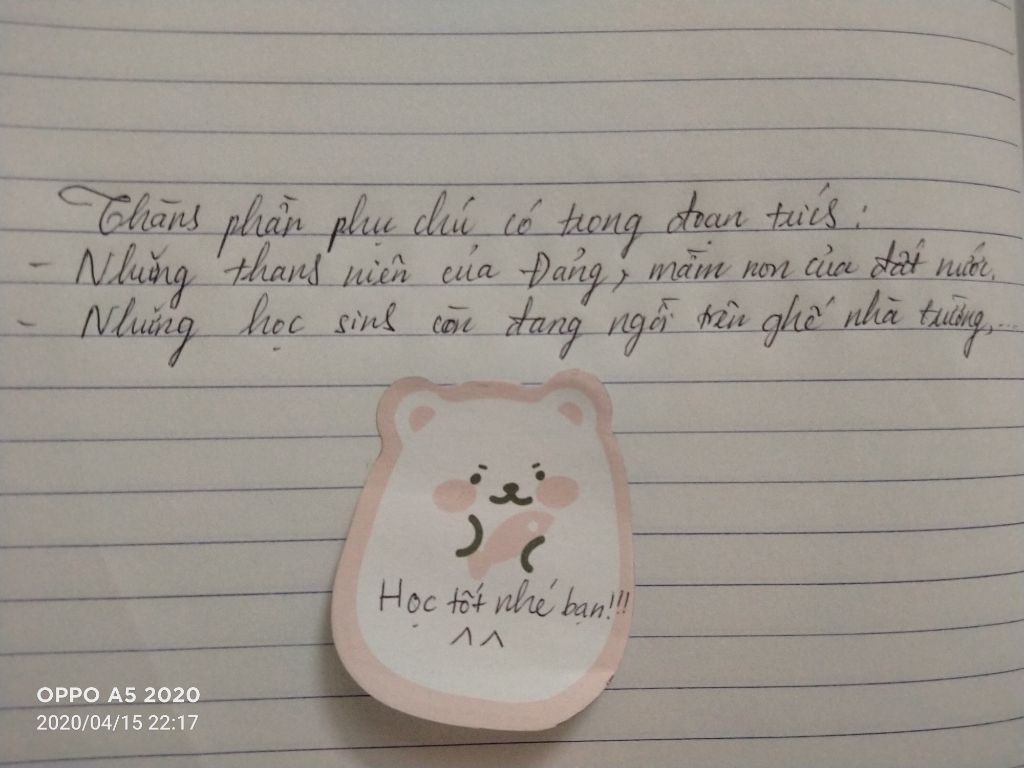 Thành phần phụ chú có trong đoạn trích:
- Những thanh niên của Đảng, mầm non của đất nước.
- Những học sinh còn đang ngồi trên ghế nhà trường,...
Học tốt nhé bạn!!!
^^
OPPO A5 2020
2020/04/15 22:17